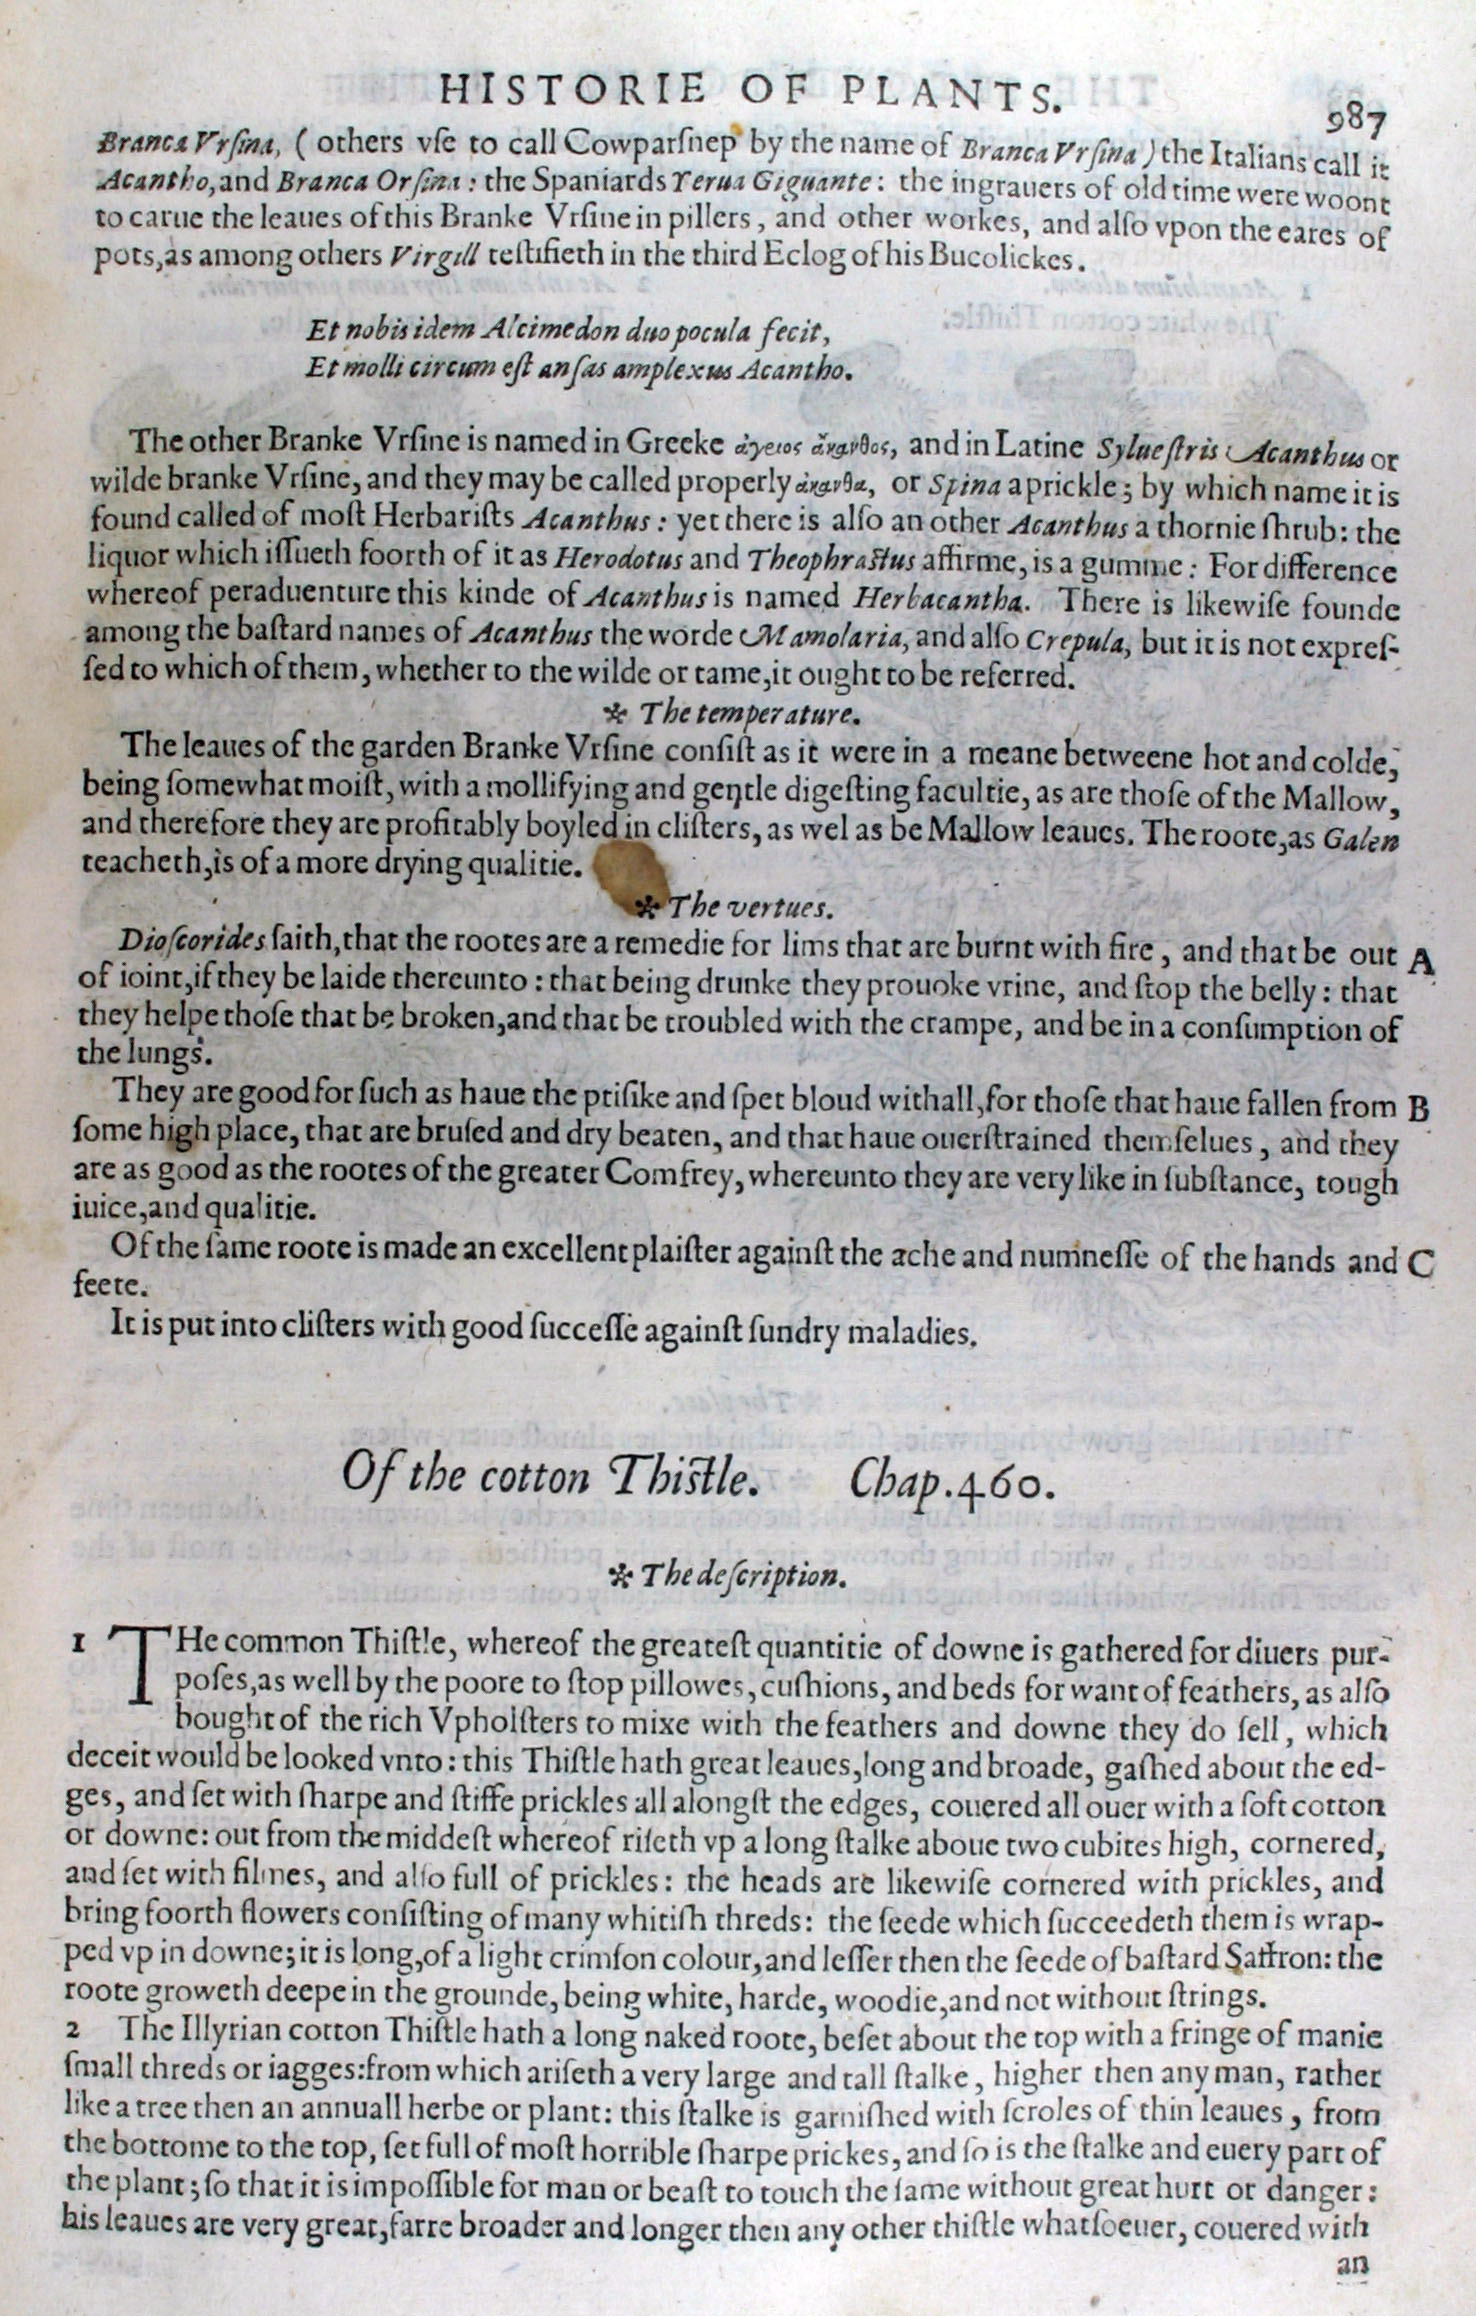 HISTORIE OF PLANTS. 987
Branca Vrſina, ( others vſe to call Cowparſnep by the name of Branca Vrſina ) the Italians call it
Acantho, and Branca Orſina : the Spaniards Yerua Giguante : the ingrauers of old time were woont
to carue the leaues of this Branke Vrſine in pillers, and other workes, and alſo vpon the eares of
pots, as among others Virgill teſtifieth in the third Eclog of his Bucolickes.
Et nobis idem Alcimedon duo pocula fecit,
Et molli circum eſt anſas amplexus Acantho.
The other Branke Vrſine is named in Greeke ἄγριος ἄκανθος, and in Latine Sylueſtris Acanthus or
wilde branke Vrſine, and they may be called properly ἄκανθα, or Spina a prickle; by which name it is
found called of moſt Herbariſts Acanthus : yet there is alſo an other Acanthus a thornie ſhrub: the
liquor which iſſueth foorth of it as Herodotus and Theophraſtus affirme, is a gumme : For difference
whereof peraduenture this kinde of Acanthus is named Herbacantha. There is likewiſe founde
among the baſtard names of Acanthus the worde Mamolaria, and alſo Crepula, but it is not expreſ-
ſed to which of them, whether to the wilde or tame, it ought to be referred.
* The temperature.
The leaues of the garden Branke Vrſine conſiſt as it were in a meane betweene hot and colde,
being ſomewhat moiſt, with a mollifying and gentle digeſting facultie, as are thoſe of the Mallow,
and therefore they are profitably boyled in cliſters, as wel as be Mallow leaues. The roote, as Galen
teacheth, is of a more drying qualitie.
* The vertues.
Dioſcorides ſaith, that the rootes are a remedie for lims that are burnt with fire, and that be out A
of ioint, if they be laide thereunto : that being drunke they prouoke vrine, and ſtop the belly : that
they helpe thoſe that be broken, and that be troubled with the crampe, and be in a conſumption of
the lungs.
They are good for ſuch as haue the ptiſike and ſpet bloud withall, for thoſe that haue fallen from B
ſome high place, that are bruſed and dry beaten, and that haue ouerſtrained themſelues, and they
are as good as the rootes of the greater Comfrey, whereunto they are very like in ſubſtance, tough
iuice, and qualitie.
Of the ſame roote is made an excellent plaiſter againſt the ache and numneſſe of the hands and C
feete.
It is put into cliſters with good ſucceſſe againſt ſundry maladies.
Of the cotton Thiſtle. Chap. 460.
* The deſcription.
1 THe common Thiſtle, whereof the greateſt quantitie of downe is gathered for diuers pur-
poſes, as well by the poore to ſtop pillowes, cuſhions, and beds for want of feathers, as alſo
bought of the rich Vpholſters to mixe with the feathers and downe they do ſell, which
deceit would be looked vnto : this Thiſtle hath great leaues, long and broade, gaſhed about the ed-
ges, and ſet with ſharpe and ſtiffe prickles all alongſt the edges, couered all ouer with a ſoft cotton
or downe: out from the middeſt whereof riſeth vp a long ſtalke aboue two cubites high, cornered,
and ſet with filmes, and alſo full of prickles : the heads are likewiſe cornered with prickles, and
bring foorth flowers conſiſting of many whitiſh threds: the ſeede which ſucceedeth them is wrap-
ped vp in downe; it is long, of a light crimſon colour, and leſſer then the ſeede of baſtard Saffron: the
roote groweth deepe in the grounde, being white, harde, woodie, and not without ſtrings.
2 The Illyrian cotton Thiſtle hath a long naked roote, beſet about the top with a fringe of manie
ſmall threds or iagges: from which ariſeth a very large and tall ſtalke, higher then any man, rather
like a tree then an annuall herbe or plant: this ſtalke is garniſhed with ſcroles of thin leaues, from
the bottome to the top, ſet full of moſt horrible ſharpe prickes, and ſo is the ſtalke and euery part of
the plant; ſo that it is impoſſible for man or beaſt to touch the ſame without great hurt or danger :
his leaues are very great, farre broader and longer then any other thiſtle whatſoeuer, couered with
an